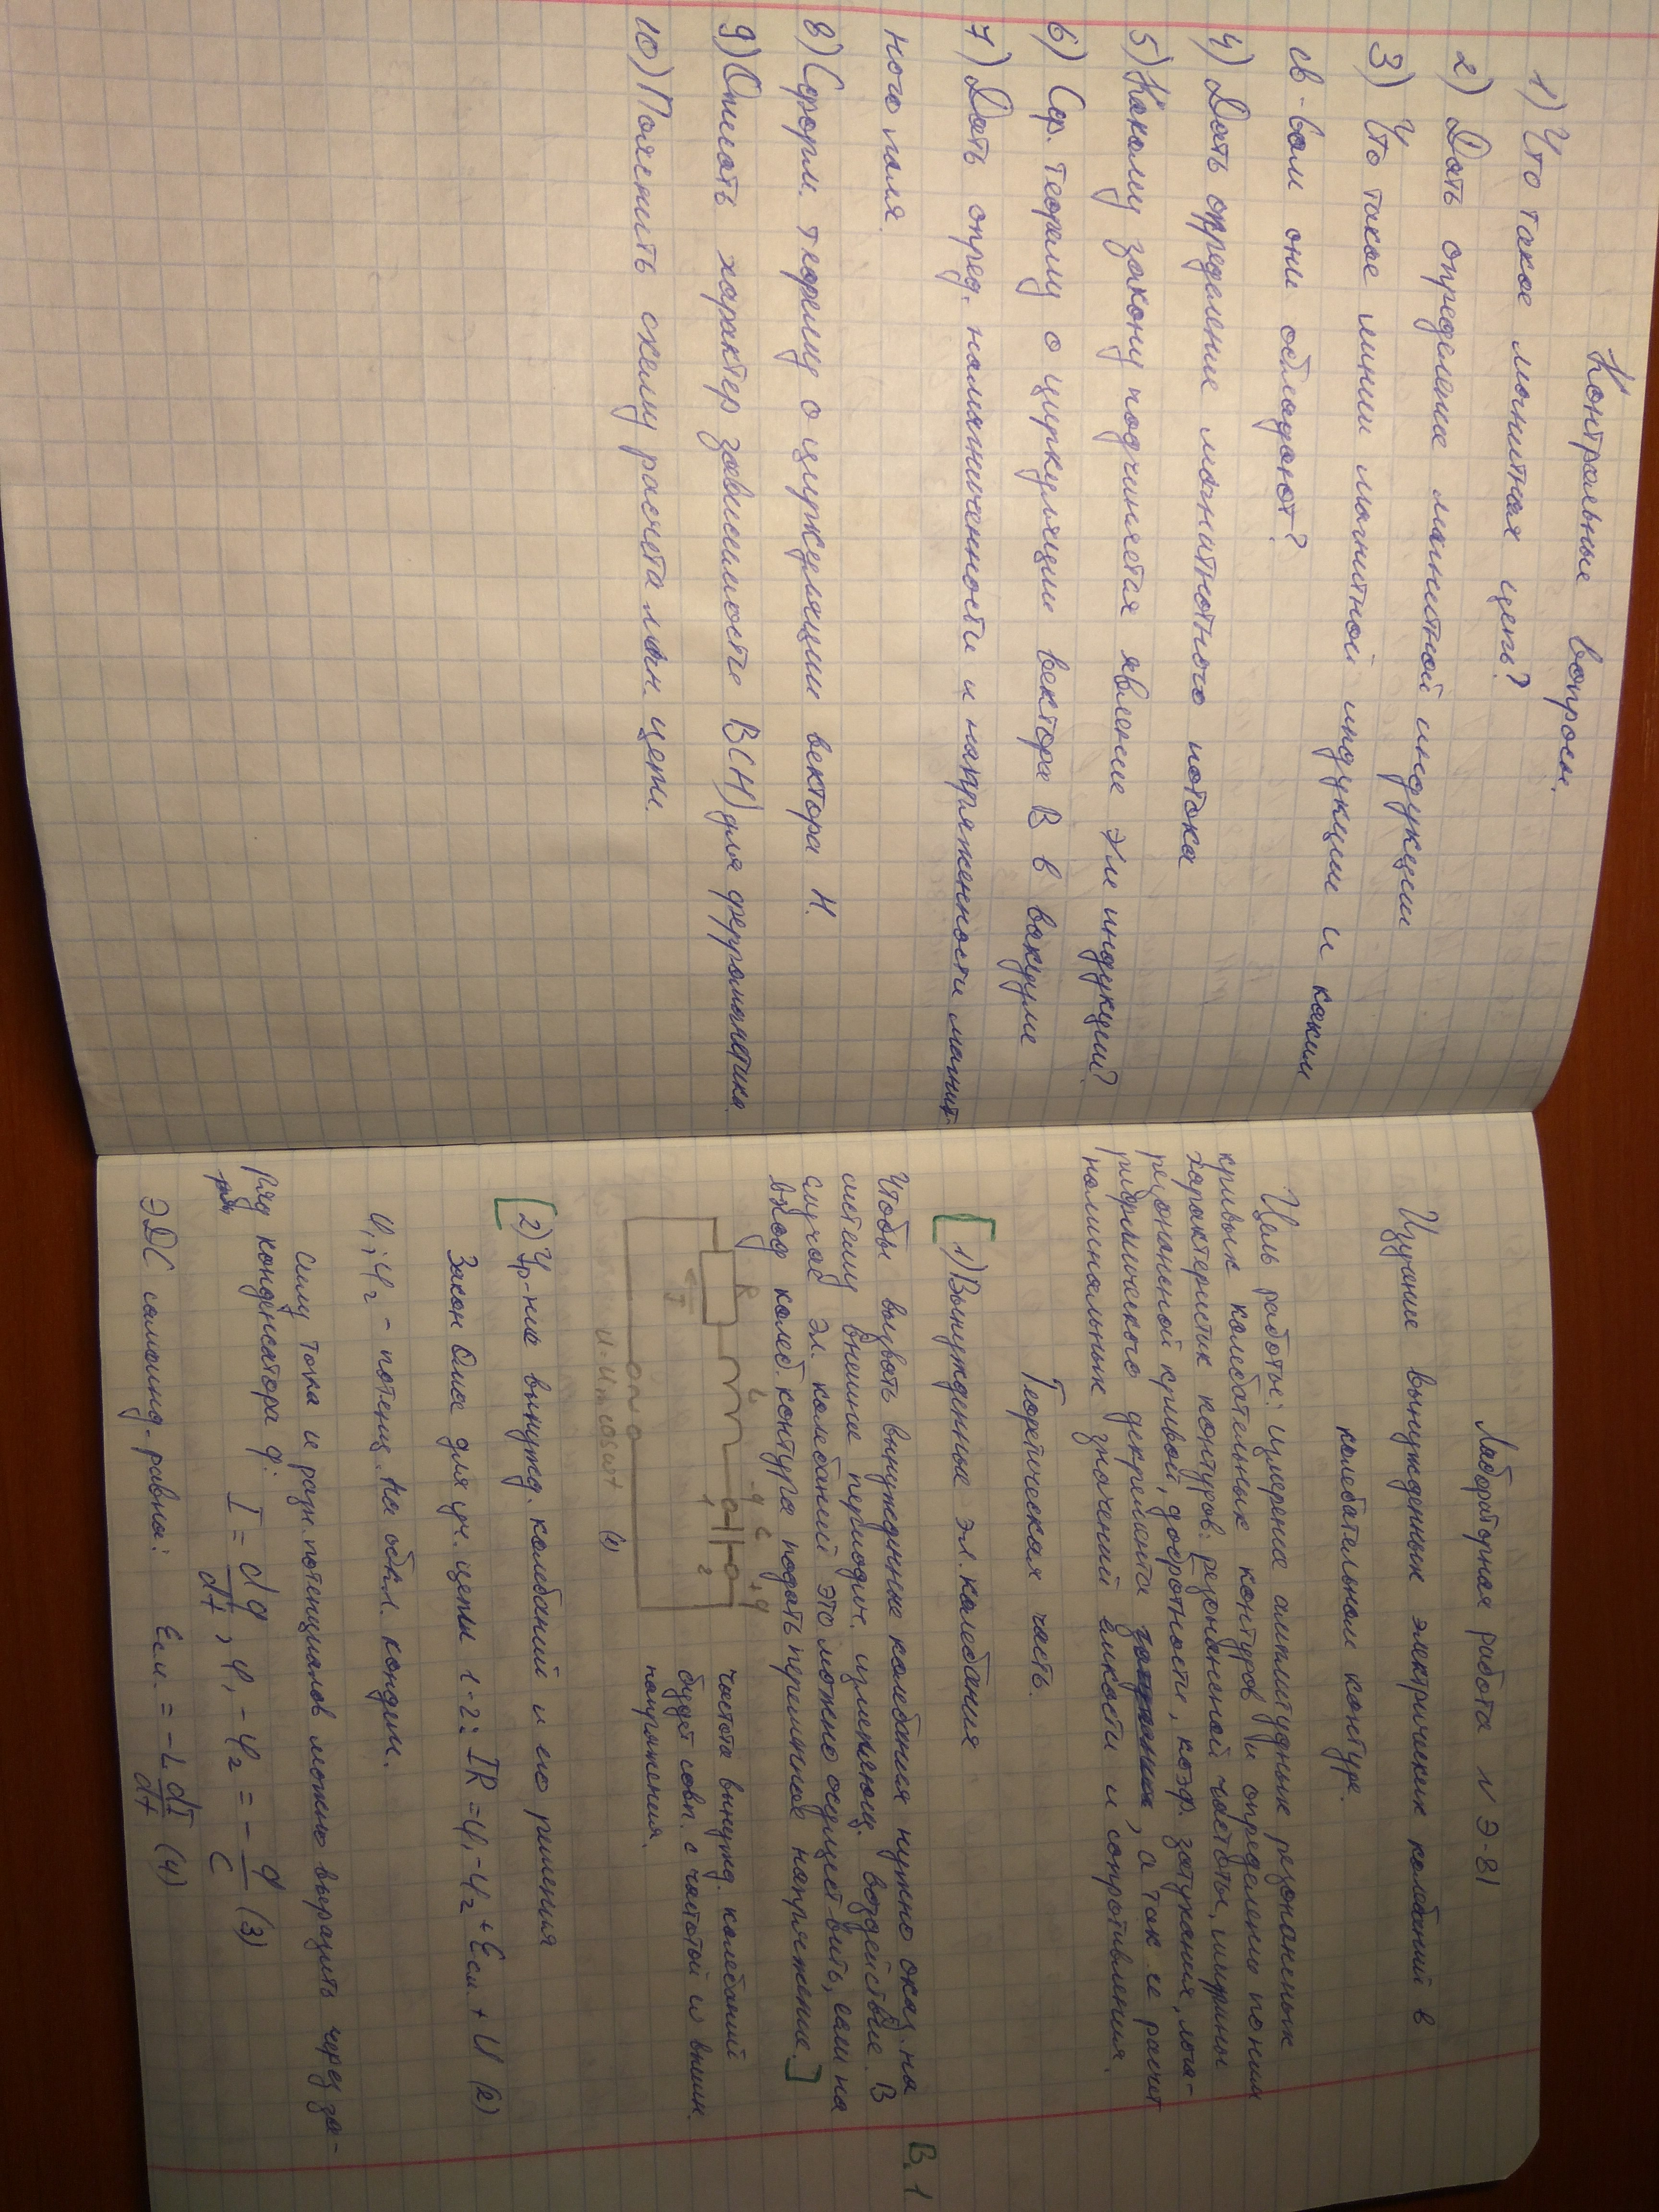 Контрольные вопросы.
1) Что такое магнитная цепь?
2) Дать определение магнитной индукции
3) Что такое линии магнитной индукции и каким
св-вам они обладают?
4) Дать определение магнитнотного потока
5) Какому закону подчиняется явление э/м индукции?
6) Сф. теорему о циркуляции вектора B в вакууме
7) Дать опред. намагниченности и напряженности магнит-
ного поля.
8) Сформ. теорему о циркуляции вектора H.
9) Описать характер зависимости B(H) для ферромагнетика.
10) Пояснить схему расчета магн. цепи.
Лабораторная работа N Э-81
Изучение вынужденных электрических колебаний в
колебательном контуре.
Цель работы: измерение амплитудных резонансных
кривых колебательных контуров и определение по ним
характеристик контуров: резонансной частоты, ширины
резонансной кривой, добротности, коэф. затухания, лога-
рифмического декремента , а так и расчет
номинальных значений емкости и сопротивления.
Теоретическая часть.
[1) Вынужденные эл. колебания
Чтобы вызвать вынужденные колебания нужно оказ. на
систему внешнее периодич. изменяющ. воздействие. В
случае эл. колебаний это можно осуществить, если на
вход колеб. контура подать переменное напряжение.]
В. 1
R L -q C +q
1 2
I
U=Um cosωt (1)
частота вынужд. колебаний
будет совп. с частотой ω внешн.
напряжения.
[2) Ур-ние вынужд. колебаний и его решения
Закон Ома для уч. цепи 1-2: IR = φ₁-φ₂ + Ɛс.и. + U (2)
φ₁; φ₂ - потенц. на обкл. конден.
силу тока и разн. потенциалов можно выразить через за-
ряд конденсатора q: I = dq/dt, φ₁ - φ₂ = - q/C (3)
ЭДС самоинд. равна: Ɛс.и. = -L dI/dt (4)